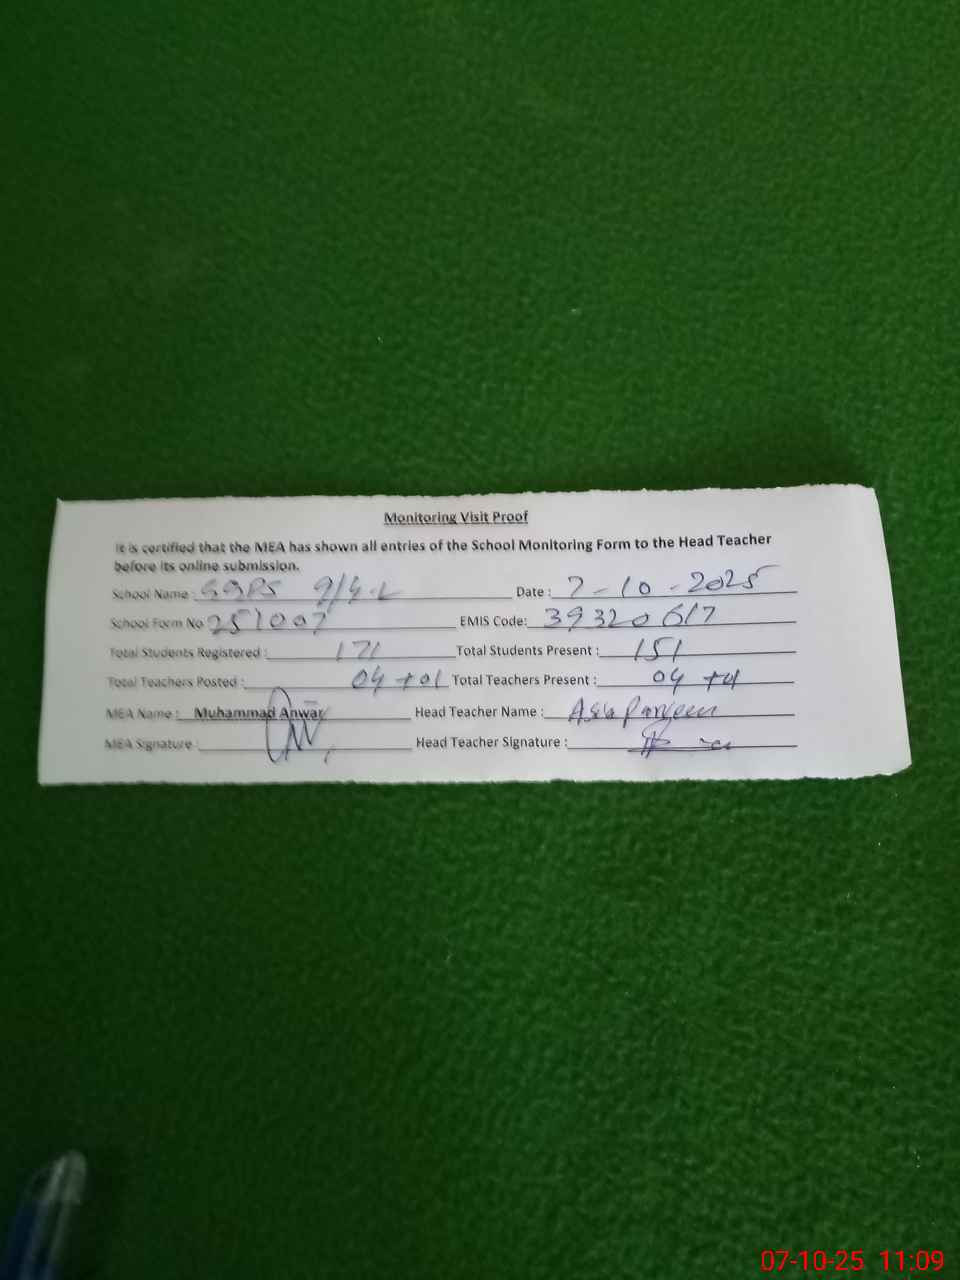 Monitoring Visit Proof
It is certified that the MEA has shown all entries of the School Monitoring Form to the Head Teacher
before its online submission.
School Name : GGPS 9/4-L Date : 7-10-2025
School Form No 251007 EMIS Code: 39320617
Total Students Registered : 171 Total Students Present : 151
Total Teachers Posted : 04+01 Total Teachers Present : 04+01
MEA Name : Muhammad Anwar Head Teacher Name : Asia Parveen
MEA Signature : Head Teacher Signature :
07-10-25 11:09